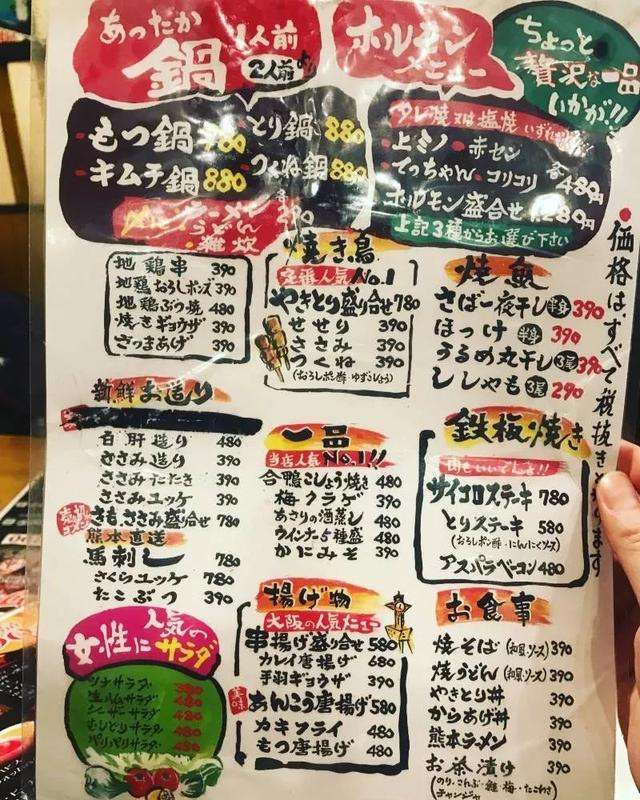 あったか
鍋
1人前
2人前より
もつ鍋 780
とり鍋 880
キムチ鍋 880
つくね鍋 880
〆 ラーメン
うどん
雑炊
各290
ホルモン
メニュー
タレ焼又は塩焼
・上ミノ・赤セン
・てっちゃん・コリコリ
各480円
ホルモン盛合せ 1,280円
上記3種からお選び下さい
ちょっと
贅沢な一品
いかが!!
価格はすべて税抜きとなります
地鶏串 390
地鶏おろしポンズ 390
地鶏ぶつ焼 480
焼きギョウザ 390
さつまあげ 390
焼き鳥
定番人気No.1
やきとり盛り合せ 780
せせり 390
ささみ 390
つくね 390
(おろしポン酢・ゆずこしょう)
焼魚
さば一夜干し 半身 390
ほっけ 半身 390
うるめ丸干し 3尾 390
ししゃも 3尾 290
新鮮お造り
白肝造り 480
ささみ造り 390
ささみたたき 390
ささみユッケ 390
きもささみ盛合せ 780
熊本直送
馬刺し 780
さくらユッケ 780
たこぶつ 390
一品
当店人気No.1!!
合鴨こしょう焼き 480
梅クラゲ 390
あさりの酒蒸し 480
ウインナー5種盛 480
かにみそ 390
鉄板焼き
肉もいいでんき!!
サイコロステーキ 780
とりステーキ 580
(おろしポン酢・にんにくソース)
アスパラベーコン 480
女性に
人気の
サラダ
ツナサラダ 390
生ハムサラダ 480
シーザーサラダ 480
むしどりサラダ 480
パリパリサラダ 480
揚げ物
大阪の人気メニュー
串揚げ盛り合せ 580
カレイ唐揚げ 680
手羽ギョウザ 390
美味
あんこう唐揚げ 580
カキフライ 480
もつ唐揚げ 480
お食事
焼そば (和風、ソース) 390
焼うどん (和風、ソース) 390
やきとり丼 390
からあげ丼 390
熊本ラーメン 390
お茶漬け 390
(のり・こんぶ・鮭・梅・たこわさ
チャンジャ)